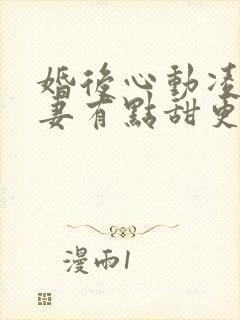 婚後心動凌
妻有點甜更
漫雨1